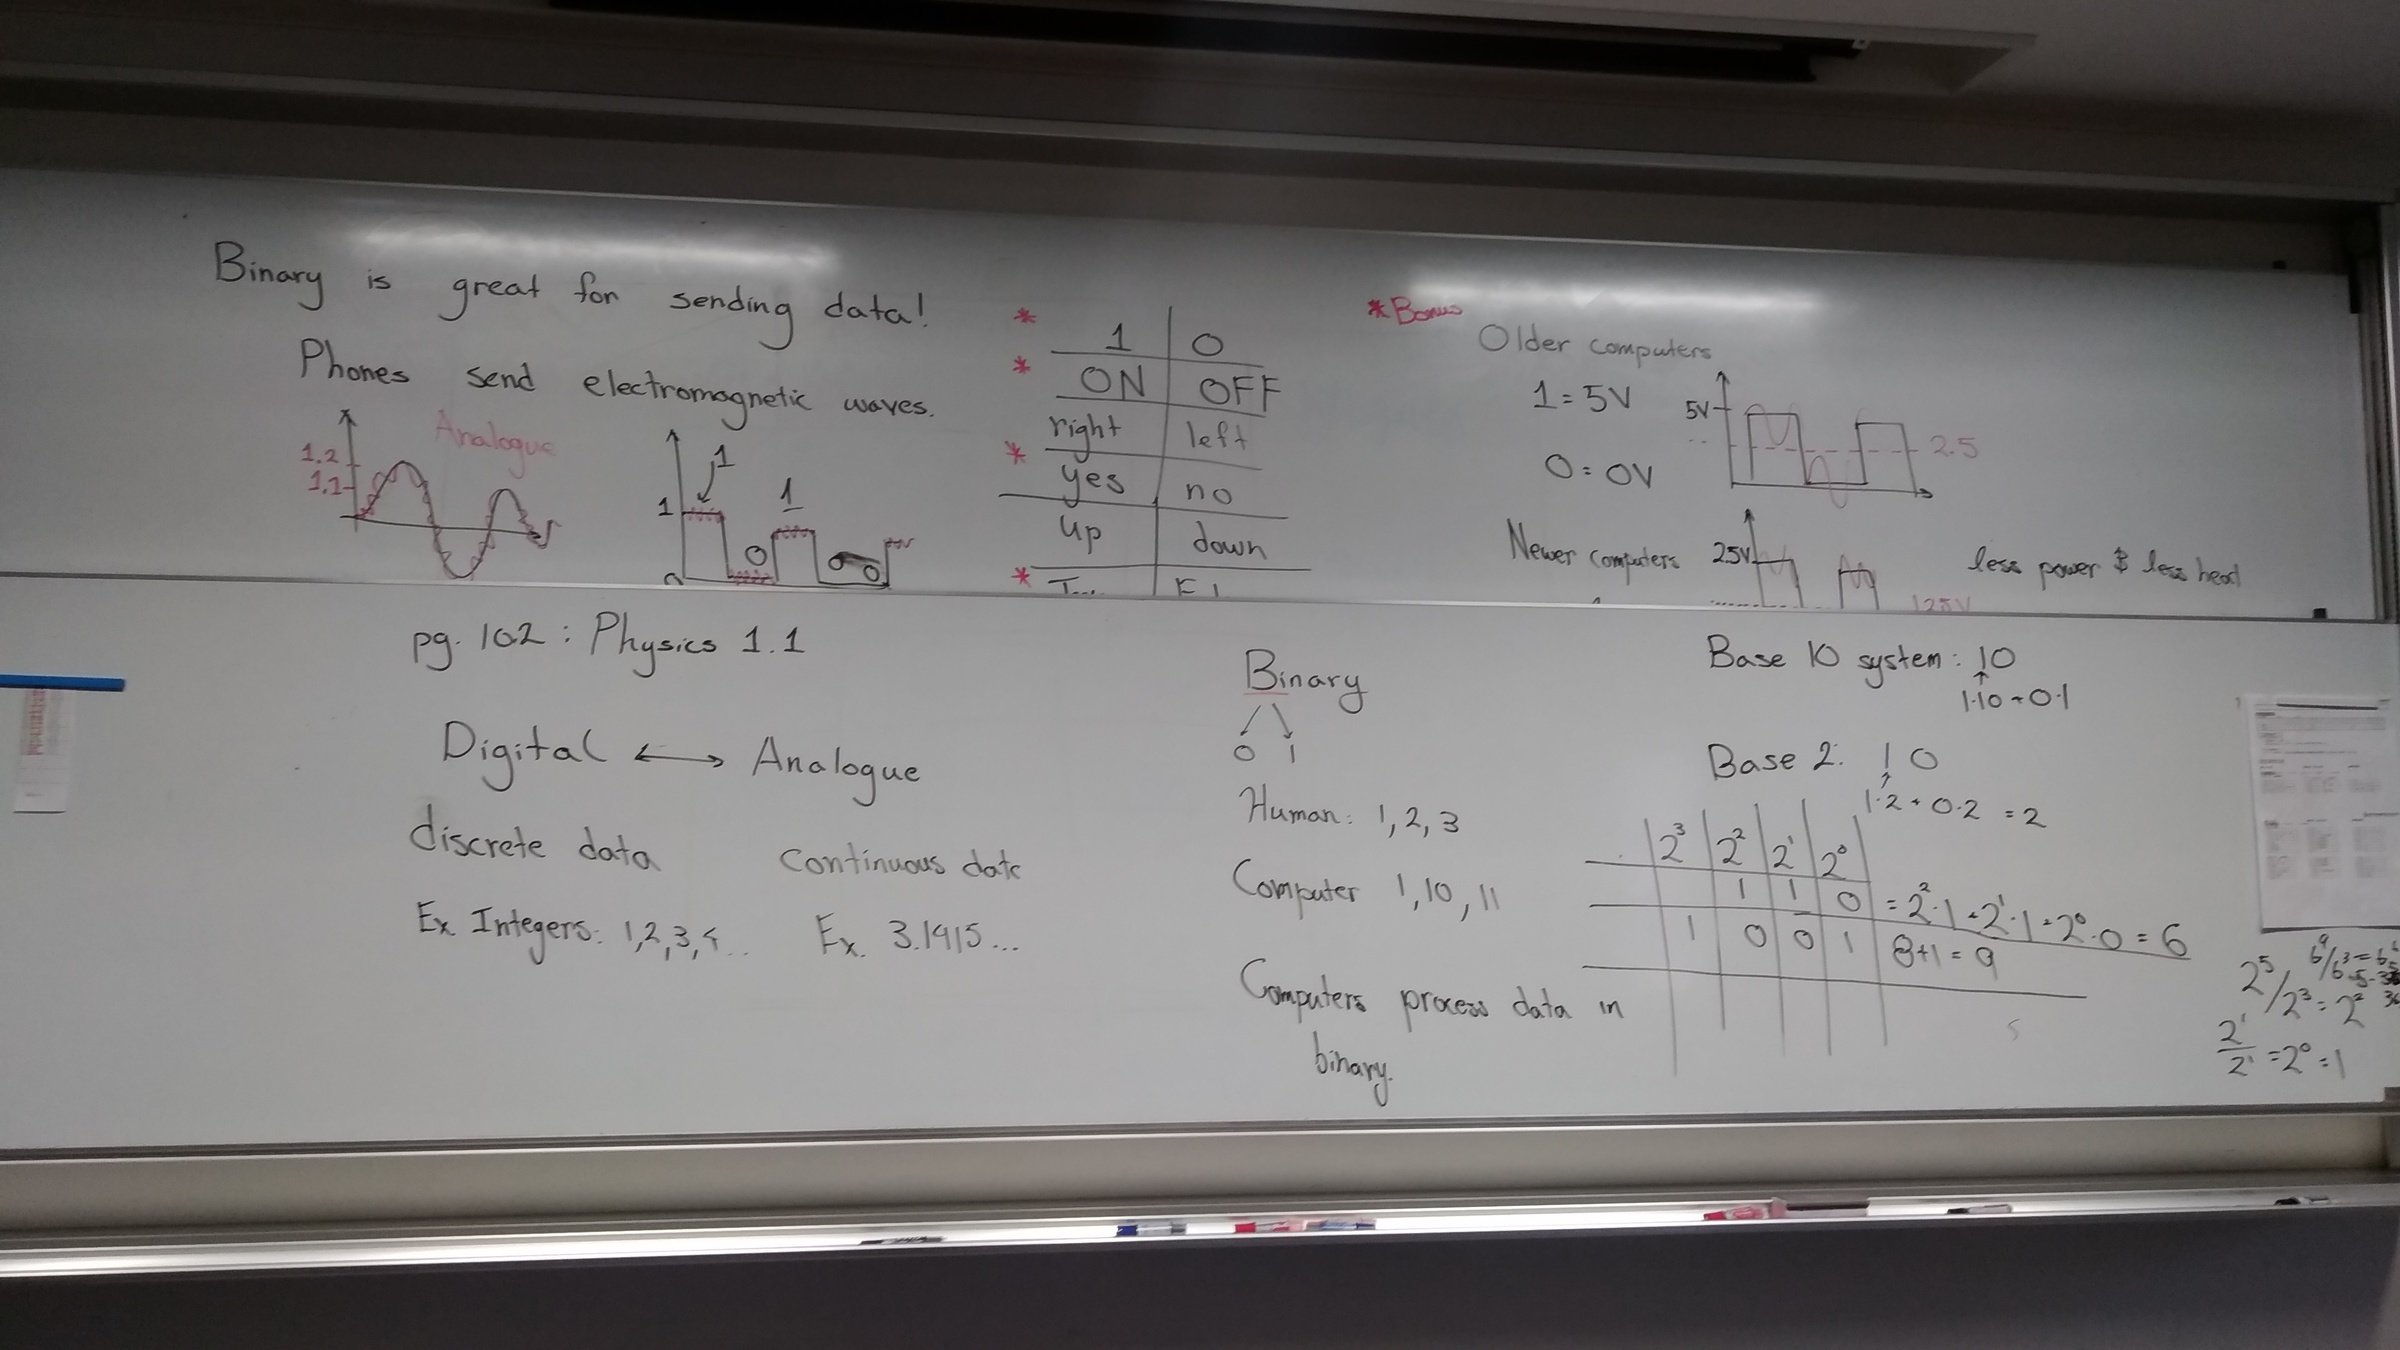 Binary is great for sending data!
Phones send electromagnetic waves.
Analogue
1.2
1.1
1
1
1
0
* 1 | 0
* ON | OFF
right | left
* yes | no
up | down
*
* Bonus
Older computers
1 = 5V
0 = 0V
5V
2.5
Newer computers
2.5V
less power & less heat
1.25V
pg. 102 : Physics 1.1
Digital ↔ Analogue
discrete data
continuous data
Ex Integers: 1,2,3,4...
Ex. 3.1415...
Binary
0 1
Human: 1, 2, 3
Computer 1, 10, 11
Computers process data in
binary.
Base 10 system: 10
1·10 + 0·1
Base 2: 1 0
1·2 + 0·2 = 2
2³ 2² 2¹ 2⁰
1 1 0 = 2²·1 + 2¹·1 + 2⁰·0 = 6
1 0 0 1 8+1 = 9
2⁵/2³ = 2²
2¹/2¹ = 2⁰ = 1